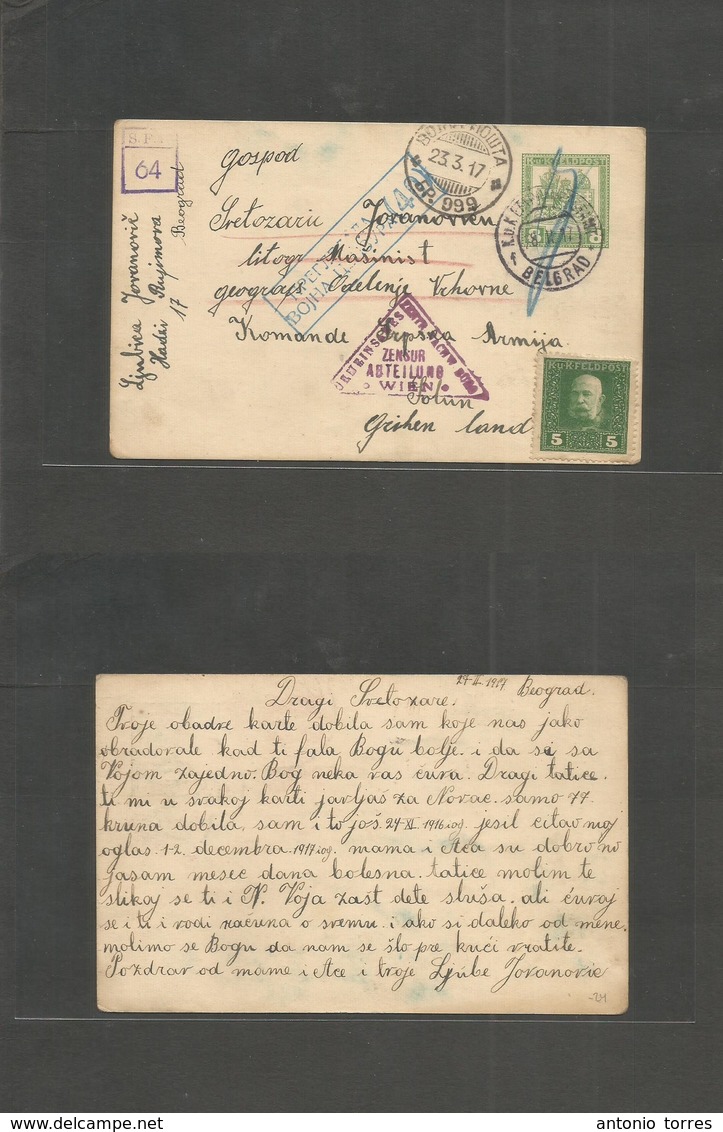 S.P.
64
Ljubica Jovanovič
Hadži Rujimova
17 Beograd
Gospod
Svetozaru Jovanoviću
litogr Mašinist
geografs Odelenje Vrhovne
Komande Srpska Armija
Solun
Grihen land
23.3.17
БР. 999
K.u.K. FELDPOST
BELGRAD
ВОЈНА
ZENSUR
ABTEILUNG
WIEN
K.u.K. FELDPOST
5 5
24 II 1917 Beograd.
Dragi Svetozare.
Tvoje obadve karte dobila sam koje nas jako
obradovale kad ti fala Bogu bolje. i da si sa
Vojom zajedno. Bog neka vas čuva. Dragi tatice.
ti mi u svakoj karti javljaš za Novac. samo 77
kruna dobila, sam i to još. 24-XI 1916 iog. jesil čitav moj
oglas. 1-2. decembra. 1917 iog. mama i Aca su dobro no
jasam mesec dana bolesna. tatice molim te
slikaj se ti i N. Voja zašt dete sluša. ali čuvaj
se i ti i vodi računa o svemu. i ako si daleko od mene.
molimo se Bogu da nam se što pre kući vratite.
Pozdrav od mame i Ace i tvoje Ljube Jovanovic
-24
www.delcampe.net
antonio torres